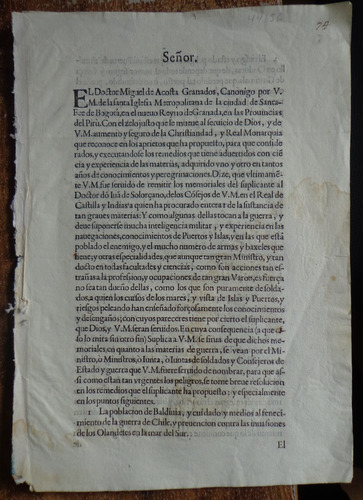 79
Señor.
EL Doctor Miguel de Acosta Granados, Canonigo por V.
M. de la santa Iglesia Metropolitana de la ciudad de Santa-
Fè de Bogotà, en el nuevo Reyno de Granada, en las Provincias
del Pirù. Con el zelo justo que le mueve al servicio de Dios, y de
V. M. aumento y seguro de la Christiandad, y Real Monarquia
que reconoce en los aprietos que ha propuesto, para que consi-
derados, y executandose los remedios que tiene advertidos con cie
cia y experiencia de las materias, adquirido vno y otro en tantos
años de conocimientos y peregrinaciones. Dize, que vltimamē-
te V. M. fue seruido de remitir los memoriales del suplicante al
Doctor dō Iuā de Solorçano, de los Cōsejos de V. M. en el Real de
Castilla y Indias a quien ha procurado enterar de la sustancia de
tan graues materias: Y como algunas dellas tocan a la guerra, y
deue suponerse mucha inteligencia militar, y experiencia en las
nauegaciones, conocimientos de Puertos, e Islas, y en las que està
poblado el enemigo, y el mucho numero de armas y baxeles que
tiene; y otras especialidades, que aunque tan gran Ministro, y tan
docto en todas facultades y ciencias, como son acciones tan es-
trañas a la profession, y ocupaciones de tan gran Varon, es fuerça
no sea tan dueño dellas, como los que son puramente de solda-
dos, a quien los cursos de los mares, y vista de Islas y Puertos, y
riesgos peleando han enseñado forçosamente los conocimientos
y desengaños; con cuyos pareceres tiene por cierto el suplicante,
que Dios, y V. M. seran seruidos. En cuya consequencia (a que so-
lo mira su otro fin) Suplica a V. M. se sirua de que dichos me-
moriales, en quanto a las materias de guerra, se vean por el Mi-
nistro, o Ministros, o Iunta, o Iuntas de soldados y Consejeros de
Estado y guerra que V. M. fuere seruido de nombrar, para que as-
si como estan tan vrgentes los peligros, se tome breue resolucion
en los remedios que el suplicante ha propuesto: y especialmente
en los puntos siguientes.
1 La poblacion de Baldiuia, y cuidado y medios al feneci-
miento de la guerra de Chile, y preuencion contra las inuasiones
de los Olandeses en la mar del Sur.
El